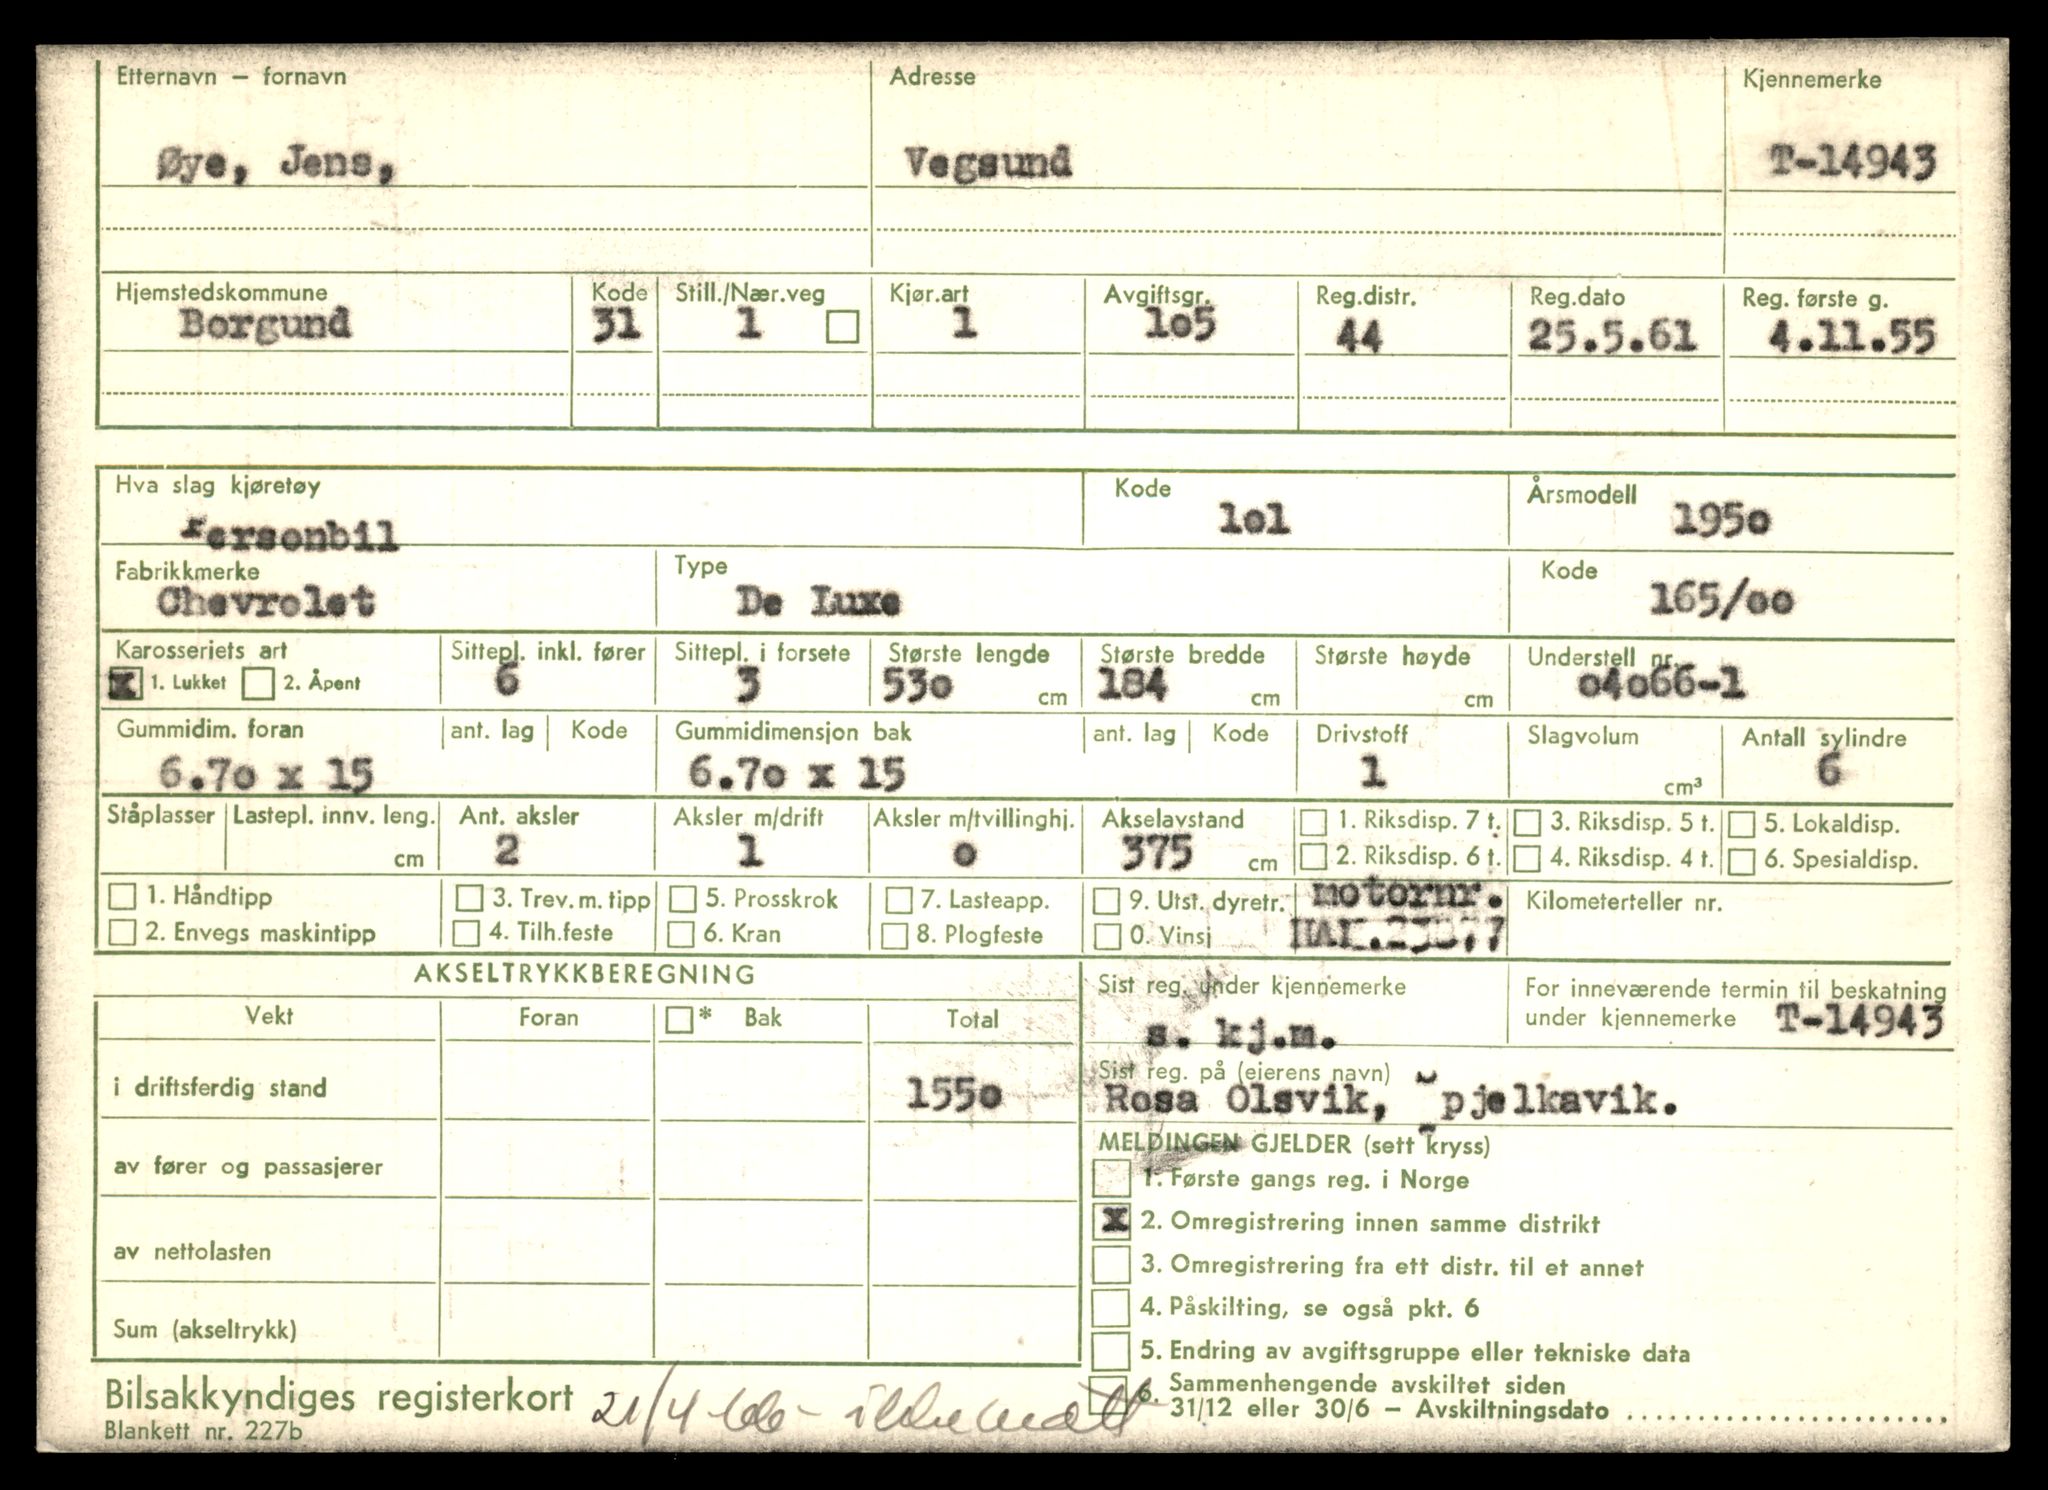 Etternavn – fornavn Adresse Kjennemerke
Øye, Jens, Vegsund T-14943
Hjemstedskommune Kode Still./Nær.veg Kjør.art Avgiftsgr. Reg.distr. Reg.dato Reg. første g.
Borgund 31 1 1 1o5 44 25.5.61 4.11.55
Hva slag kjøretøy Kode Årsmodell
Personbil 1o1 195o
Fabrikkmerke Type Kode
Chevrolet De Luxe 165/oo
Karosseriets art Sittepl. inkl. fører Sittepl. i forsete Største lengde Største bredde Største høyde Understell nr.
X 1. Lukket 2. Åpent 6 3 53o cm 184 cm cm o4o66-1
Gummidim. foran ant. lag Kode Gummidimensjon bak ant. lag Kode Drivstoff Slagvolum Antall sylindre
6.7o x 15 6.7o x 15 1 cm³ 6
Ståplasser Lastepl. innv. leng. Ant. aksler Aksler m/drift Aksler m/tvillinghj. Akselavstand 1. Riksdisp. 7 t. 3. Riksdisp. 5 t. 5. Lokaldisp.
cm 2 1 o 375 cm 2. Riksdisp. 6 t. 4. Riksdisp. 4 t. 6. Spesialdisp.
1. Håndtipp 3. Trev. m. tipp 5. Prosskrok 7. Lasteapp. 9. Utst. dyretr. motornr. Kilometerteller nr.
2. Envegs maskintipp 4. Tilh.feste 6. Kran 8. Plogfeste 0. Vinsj
AKSELTRYKKBEREGNING Sist reg. under kjennemerke For inneværende termin til beskatning
Vekt Foran * Bak Total under kjennemerke T-14943
s. kj.m.
Sist reg. på (eierens navn)
i driftsferdig stand 155o Rosa Olsvik, Spjelkavik.
MELDINGEN GJELDER (sett kryss)
av fører og passasjerer 1. Første gangs reg. i Norge
X 2. Omregistrering innen samme distrikt
av nettolasten 3. Omregistrering fra ett distr. til et annet
4. Påskilting, se også pkt. 6
Sum (akseltrykk) 5. Endring av avgiftsgruppe eller tekniske data
Bilsakkyndiges registerkort 21/4-66- ikke møtt 6. Sammenhengende avskiltet siden
31/12 eller 30/6 – Avskiltningsdato
Blankett nr. 227b